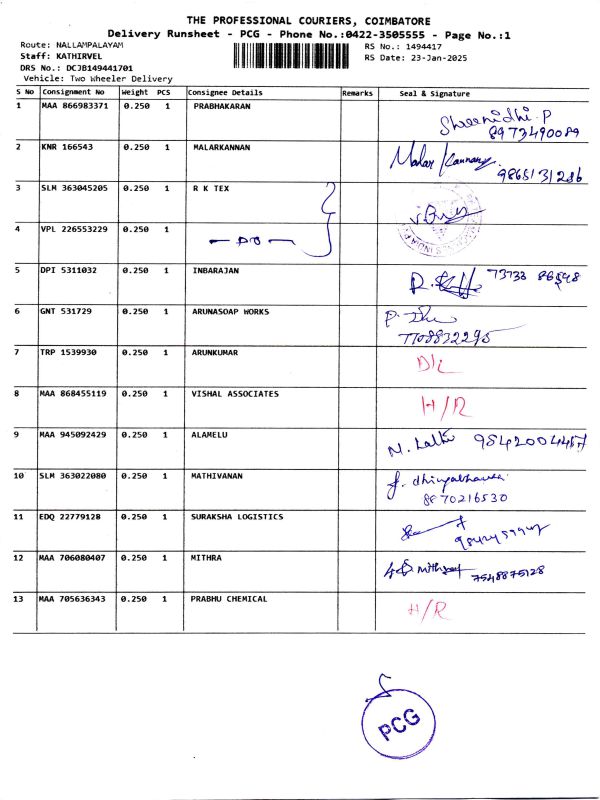 THE PROFESSIONAL COURIERS, COIMBATORE
Delivery Runsheet - PCG - Phone No.:0422-3505555 - Page No.:1
Route: NALLAMPALAYAM RS No.: 1494417
Staff: KATHIRVEL RS Date: 23-Jan-2025
DRS No.: DCJB149441701
Vehicle: Two Wheeler Delivery
S No Consignment No Weight PCS Consignee Details Remarks Seal & Signature
1 MAA 866983371 0.250 1 PRABHAKARAN Shreenidhi.P
8973490089
2 KNR 166543 0.250 1 MALARKANNAN Malar Kannan
9865131286
3 SLM 363045205 0.250 1 R K TEX
4 VPL 226553229 0.250 1 — DO —
5 DPI 5311032 0.250 1 INBARAJAN 73733
6 GNT 531729 0.250 1 ARUNASOAP WORKS
7708832295
7 TRP 1539930 0.250 1 ARUNKUMAR D/L
8 MAA 868455119 0.250 1 VISHAL ASSOCIATES H/R
9 MAA 945092429 0.250 1 ALAMELU N. Lalti
10 SLM 363022080 0.250 1 MATHIVANAN
8870216530
11 EDQ 22779128 0.250 1 SURAKSHA LOGISTICS
12 MAA 706080407 0.250 1 MITHRA 7548875128
13 MAA 705636343 0.250 1 PRABHU CHEMICAL H/R
PCG